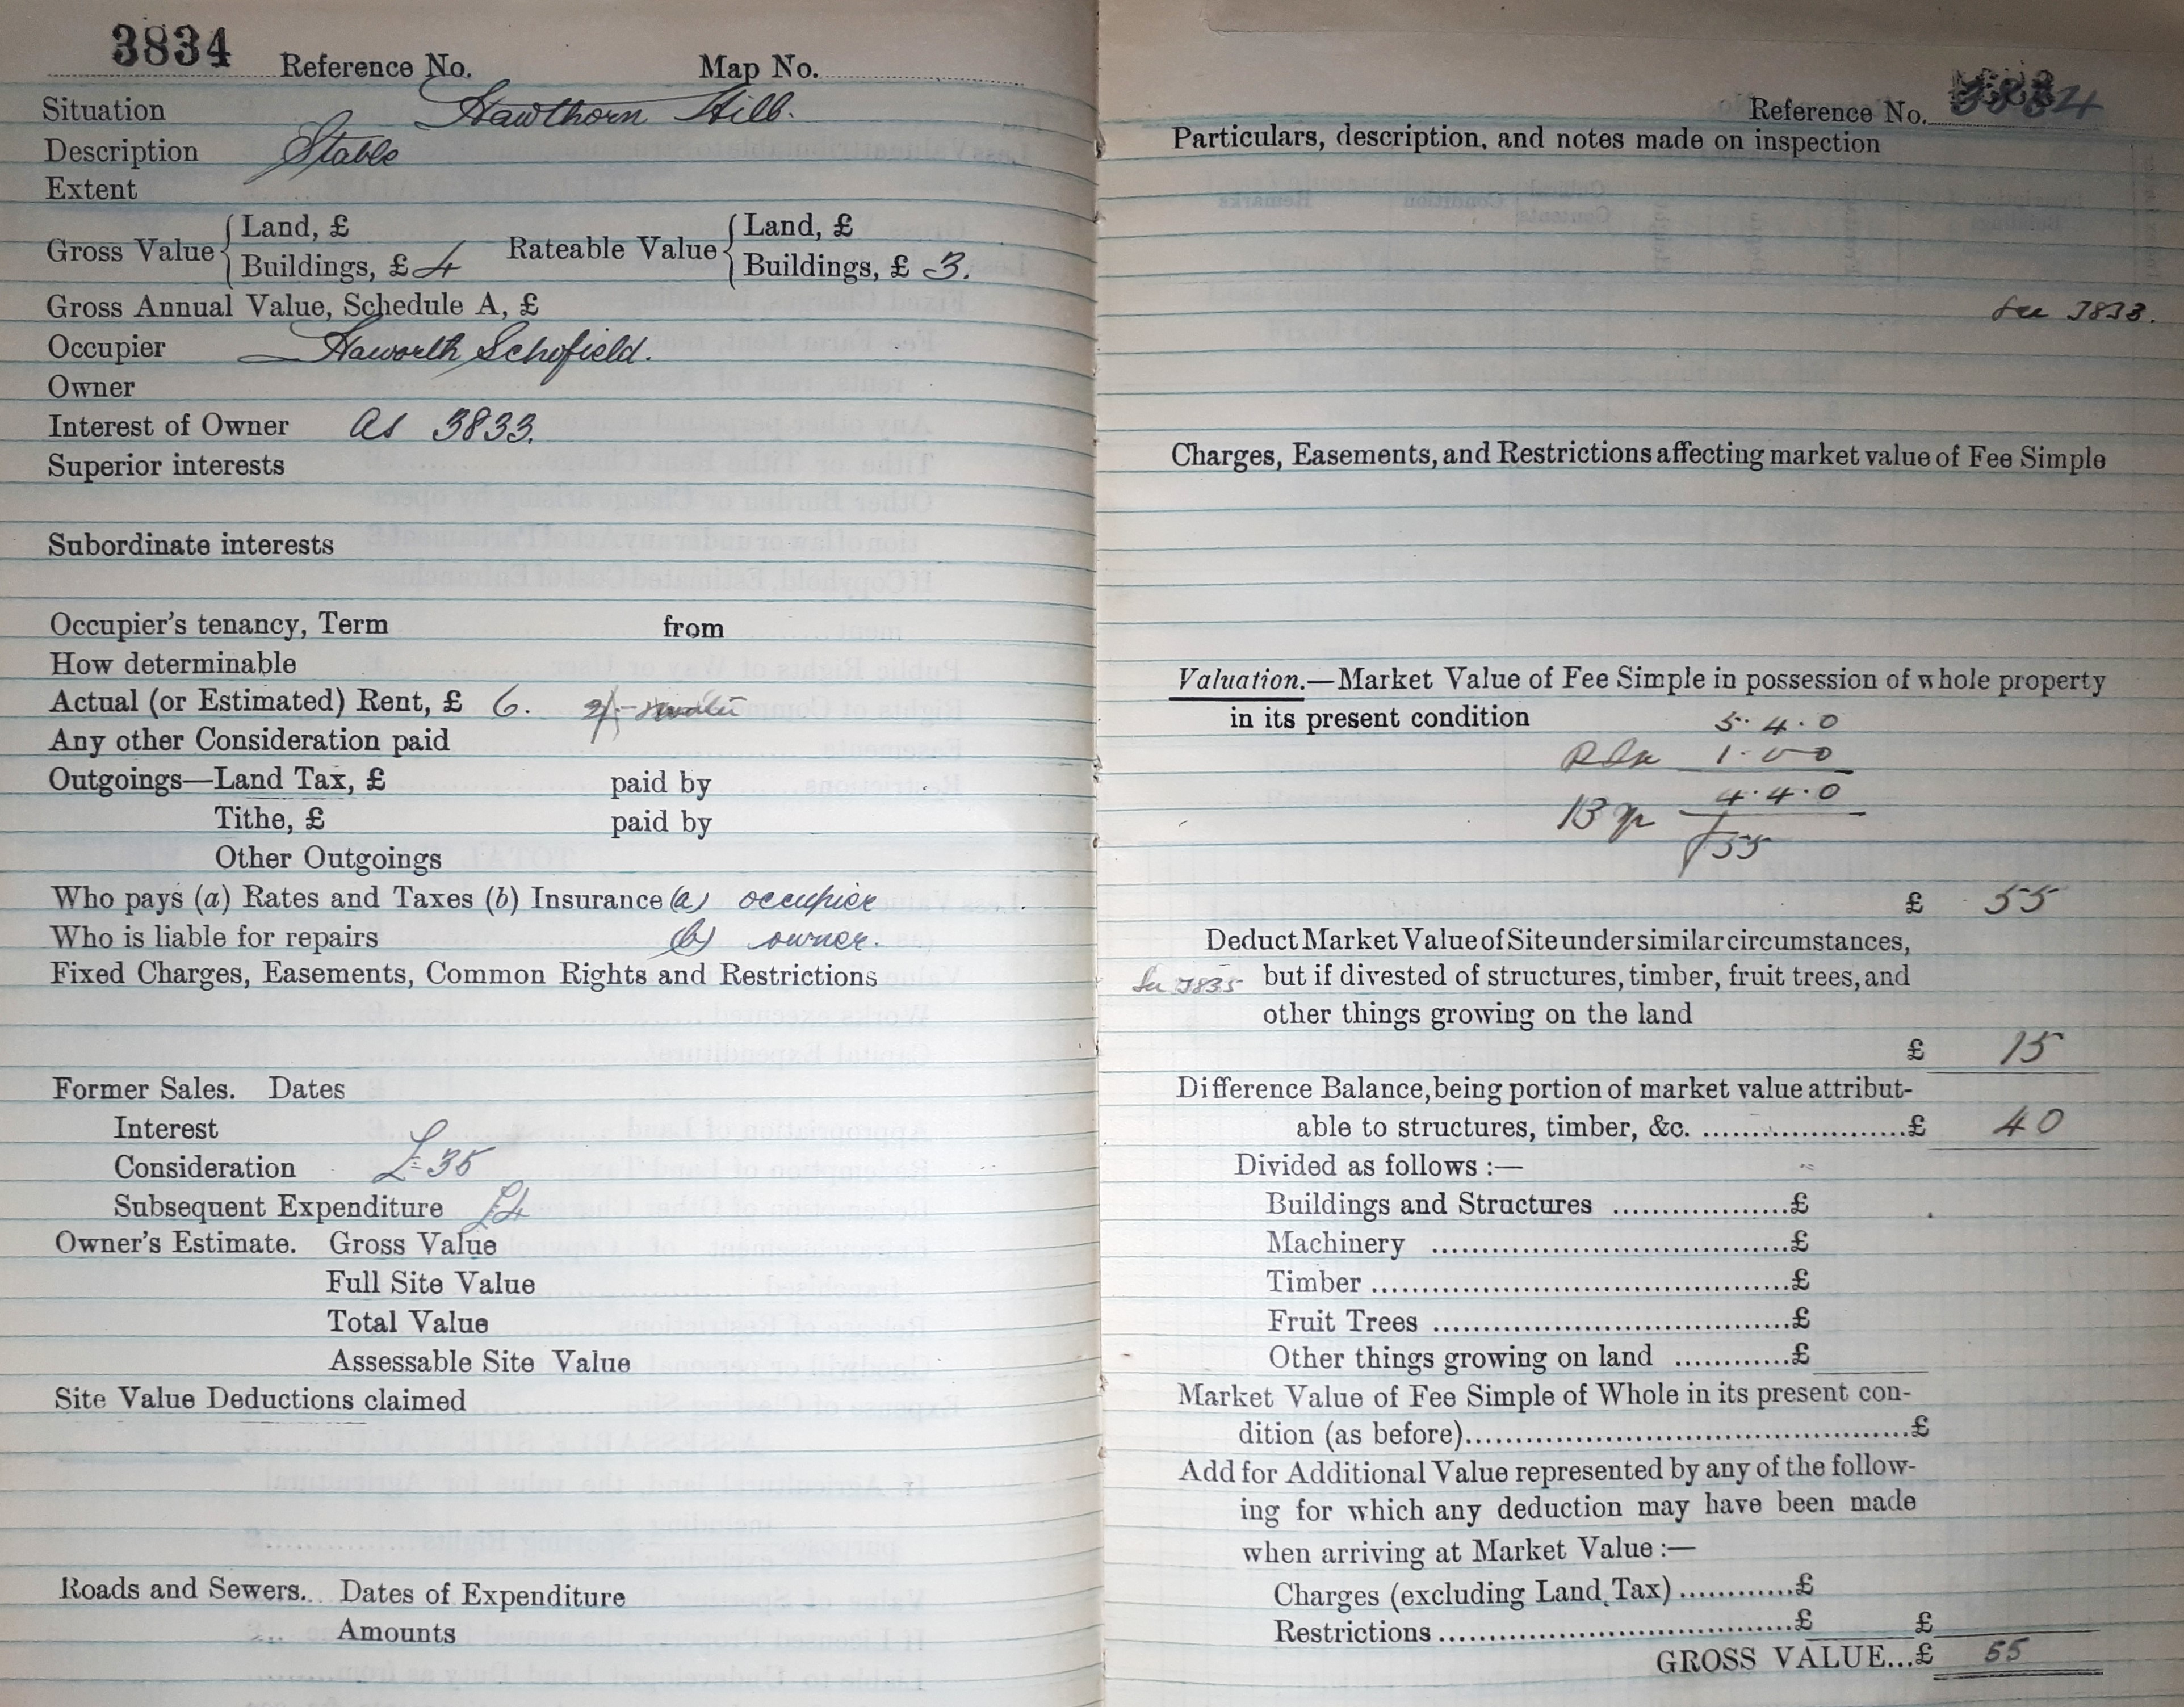 3834 Reference No. Map No.
Situation Hawthorn Hill.
Description Stable
Extent
Gross Value { Land, £ Rateable Value { Land, £
Buildings, £ 4 Buildings, £ 3.
Gross Annual Value, Schedule A, £
Occupier Haworth Schofield.
Owner
Interest of Owner as 3833.
Superior interests
Subordinate interests
Occupier's tenancy, Term from
How determinable
Actual (or Estimated) Rent, £ 6.
Any other Consideration paid
Outgoings—Land Tax, £ paid by
Tithe, £ paid by
Other Outgoings
Who pays (a) Rates and Taxes (b) Insurance (a) occupier
Who is liable for repairs (b) owner.
Fixed Charges, Easements, Common Rights and Restrictions
Former Sales. Dates
Interest
Consideration £35
Subsequent Expenditure £4
Owner's Estimate. Gross Value
Full Site Value
Total Value
Assessable Site Value
Site Value Deductions claimed
Roads and Sewers. Dates of Expenditure
Amounts
Reference No. 3834
Particulars, description, and notes made on inspection
See 3833.
Charges, Easements, and Restrictions affecting market value of Fee Simple
Valuation.—Market Value of Fee Simple in possession of whole property
in its present condition
5.4.0
1.0.0
4.4.0
13 yp
£55
£ 55
Deduct Market Value of Site under similar circumstances,
See 3835 but if divested of structures, timber, fruit trees, and
other things growing on the land
£ 15
Difference Balance, being portion of market value attribut-
able to structures, timber, &c. ........................£ 40
Divided as follows :—
Buildings and Structures ...................£
Machinery .......................................£
Timber .............................................£
Fruit Trees .......................................£
Other things growing on land ............£
Market Value of Fee Simple of Whole in its present con-
dition (as before)................................................£
Add for Additional Value represented by any of the follow-
ing for which any deduction may have been made
when arriving at Market Value :—
Charges (excluding Land Tax) ............£
Restrictions ......................................£ £
GROSS VALUE...£ 55